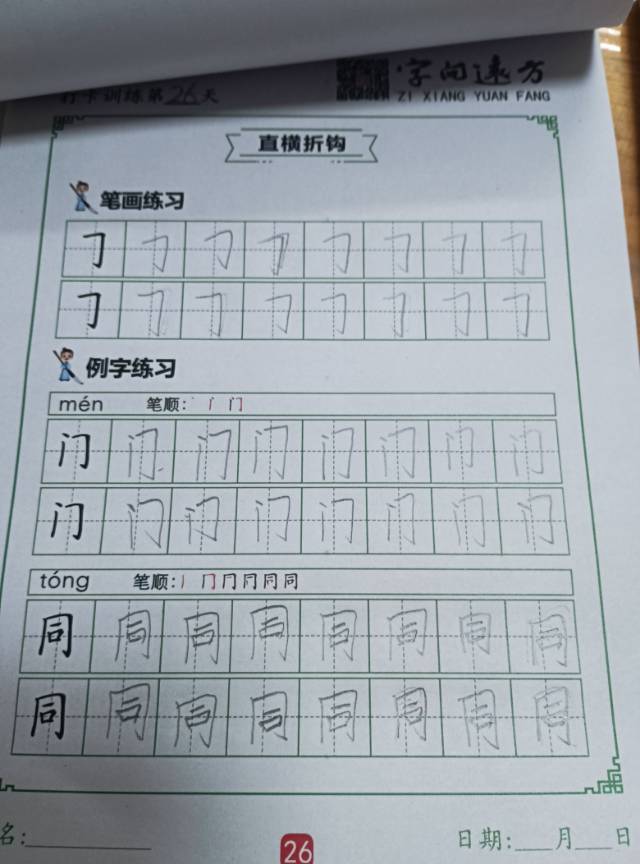 打卡训练第26天
字向远方
ZI XIANG YUAN FANG
直横折钩
笔画练习
㇆ ㇆ ㇆ ㇆ ㇆ ㇆ ㇆ ㇆
㇆ ㇆ ㇆ ㇆ ㇆ ㇆ ㇆ ㇆
例字练习
mén 笔顺: 丶 门
门 门 门 门 门 门 门 门
门 门 门 门 门 门 门 门
tóng 笔顺: 丨 冂 冂 同 同 同
同 同 同 同 同 同 同 同
同 同 同 同 同 同 同 同
名:
26
日期: 月 日